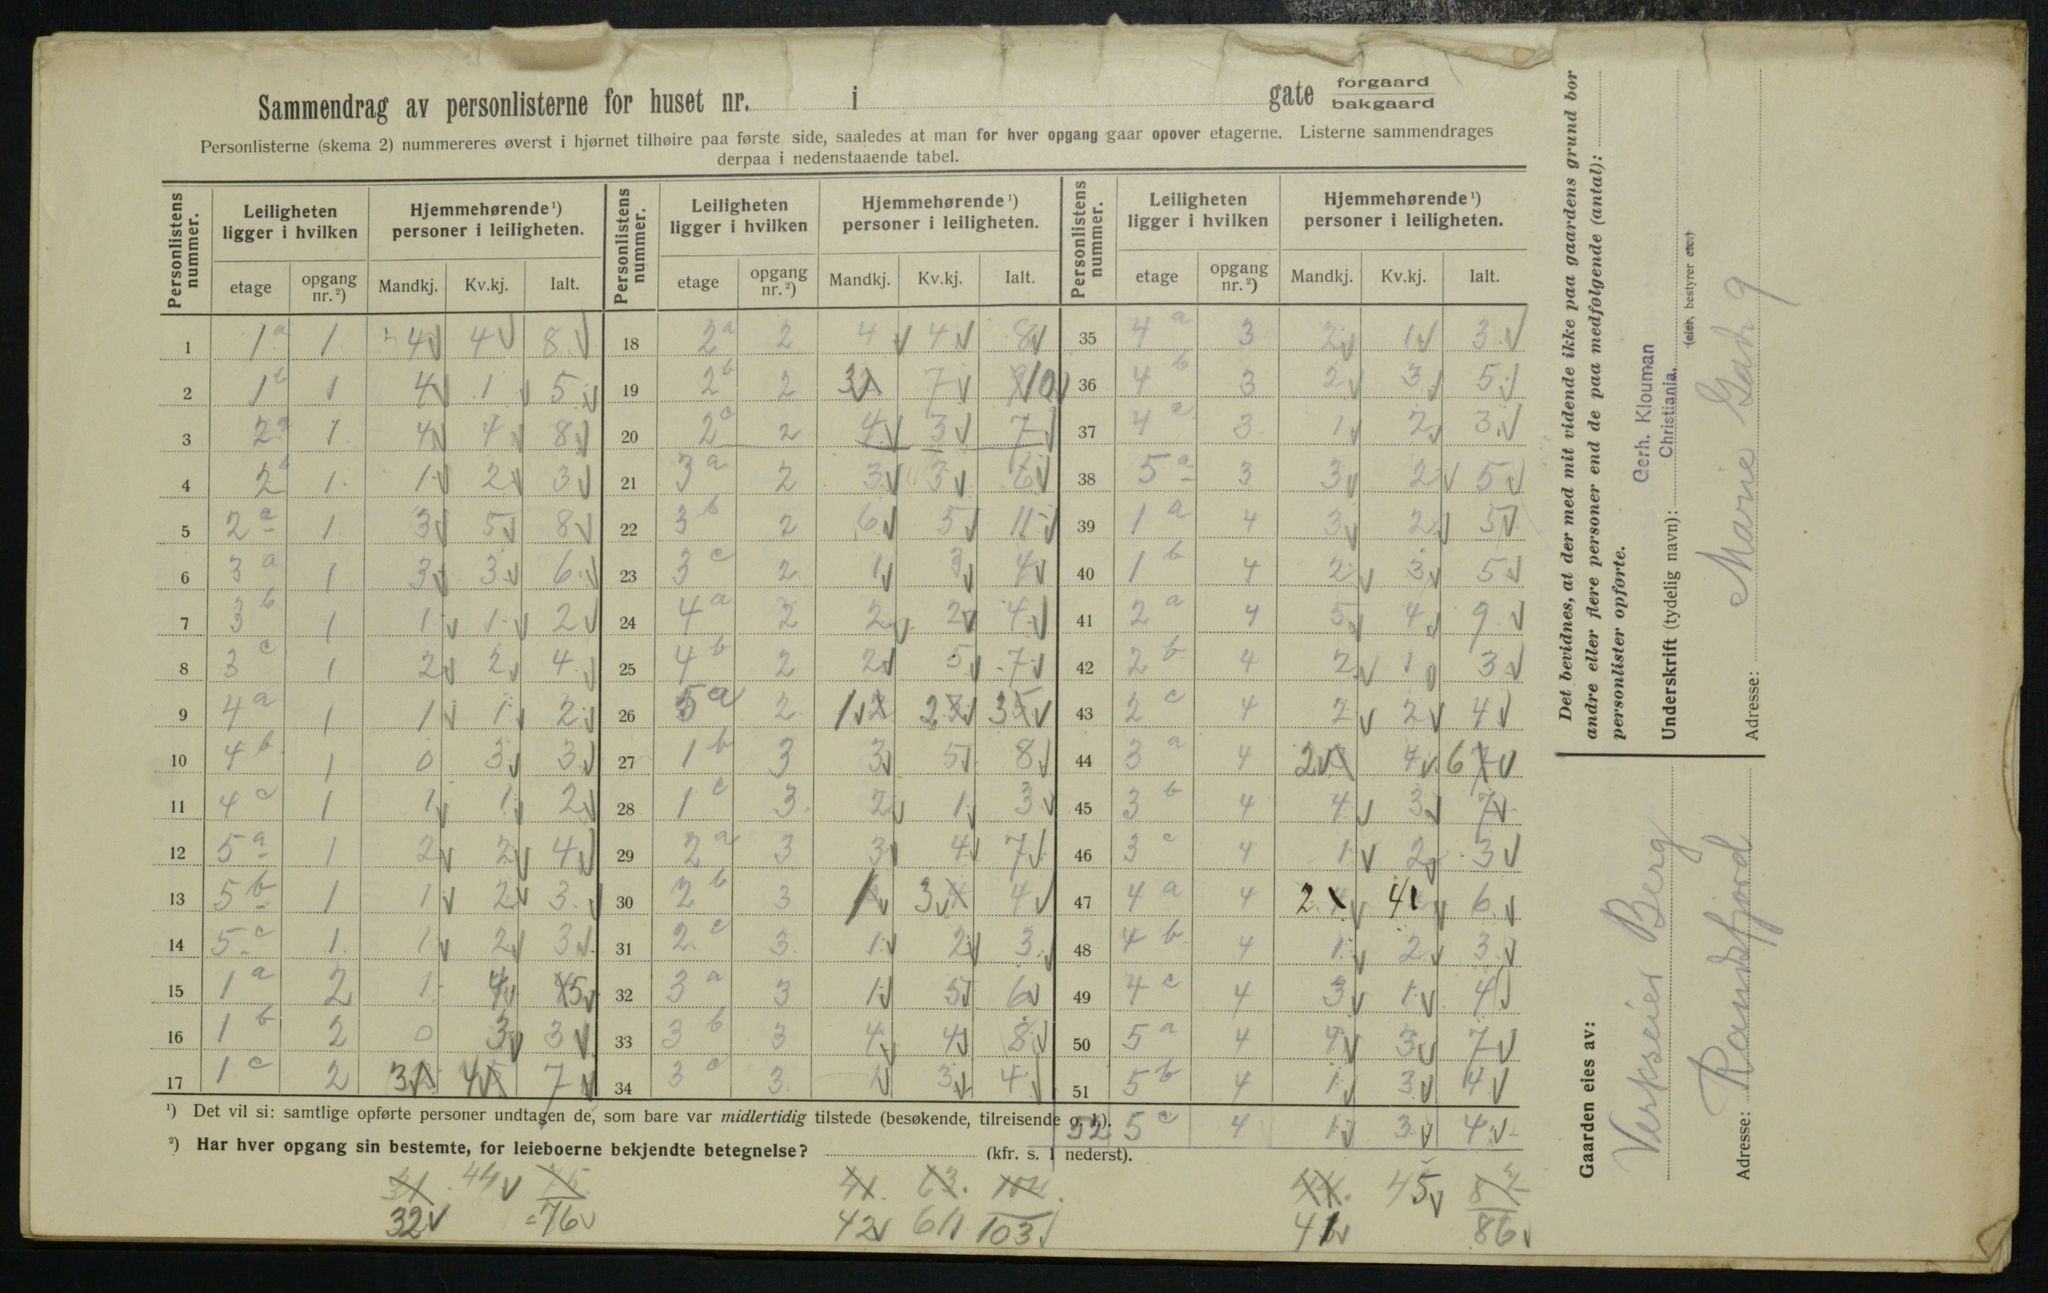 Sammendrag av personlisterne for huset nr. i gate forgaard bakgaard
Personlisterne (skema 2) nummereres øverst i hjørnet tilhøire paa første side, saaledes at man for hver opgang gaar opover etagerne. Listerne sammendrages
derpaa i nedenstaaende tabel.
Personlistens nummer. Leiligheten ligger i hvilken Hjemmehørende ¹) personer i leiligheten. Personlistens nummer. Leiligheten ligger i hvilken Hjemmehørende ¹) personer i leiligheten. Personlistens nummer. Leiligheten ligger i hvilken Hjemmehørende ¹) personer i leiligheten.
etage opgang nr. ²) Mandkj. Kv.kj. Ialt. etage opgang nr. ²) Mandkj. Kv.kj. Ialt. etage opgang nr. ²) Mandkj. Kv.kj. Ialt.
1 1a 1 4 4 8 18 2a 2 4 4 8 35 4a 3 2 1 3
2 1b 1 4 1 5 19 2b 2 3 7 10 36 4b 3 2 3 5
3 2a 1 4 4 8 20 2c 2 4 3 7 37 4c 3 1 2 3
4 2b 1 1 2 3 21 3a 2 3 3 6 38 5a 3 3 2 5
5 2c 1 3 5 8 22 3b 2 6 5 11 39 1a 4 3 2 5
6 3a 1 3 3 6 23 3c 2 1 3 4 40 1b 4 2 3 5
7 3b 1 1 1 2 24 4a 2 2 2 4 41 2a 4 5 4 9
8 3c 1 2 2 4 25 4b 2 2 5 7 42 2b 4 2 1 3
9 4a 1 1 1 2 26 5a 2 1 2 3 43 2c 4 2 2 4
10 4b 1 0 3 3 27 1b 3 3 5 8 44 3a 4 2 4 6
11 4c 1 1 1 2 28 1c 3 2 1 3 45 3b 4 4 3 7
12 5a 1 2 2 4 29 2a 3 3 4 7 46 3c 4 1 2 3
13 5b 1 1 2 3 30 2b 3 1 3 4 47 4a 4 2 4 6
14 5c 1 1 2 3 31 2c 3 1 2 3 48 4b 4 1 2 3
15 1a 2 1 4 5 32 3a 3 1 5 6 49 4c 4 3 1 4
16 1b 2 0 3 3 33 3b 3 4 4 8 50 5a 4 4 3 7
17 1c 2 3 4 7 34 3c 3 1 3 4 51 5b 4 1 3 4
52 5c 4 1 3 4
¹) Det vil si: samtlige opførte personer undtagen de, som bare var midlertidig tilstede (besøkende, tilreisende o. l.).
²) Har hver opgang sin bestemte, for leieboerne bekjendte betegnelse? (kfr. s. 1 nederst).
31 44 75 41 63 104 44 45 87
32 =76 42 61 103 41 86
Det bevidnes, at der med mit vidende ikke paa gaardens grund bor
andre eller flere personer end de paa medfølgende (antal):
personlister opførte.
Gerh. Klouman
Christiania.
Underskrift (tydelig navn):
(eier, bestyrer etc.)
Marie Gade 9
Adresse:
Gaarden eies av:
Verkseier Berg
Randsfjord
Adresse: